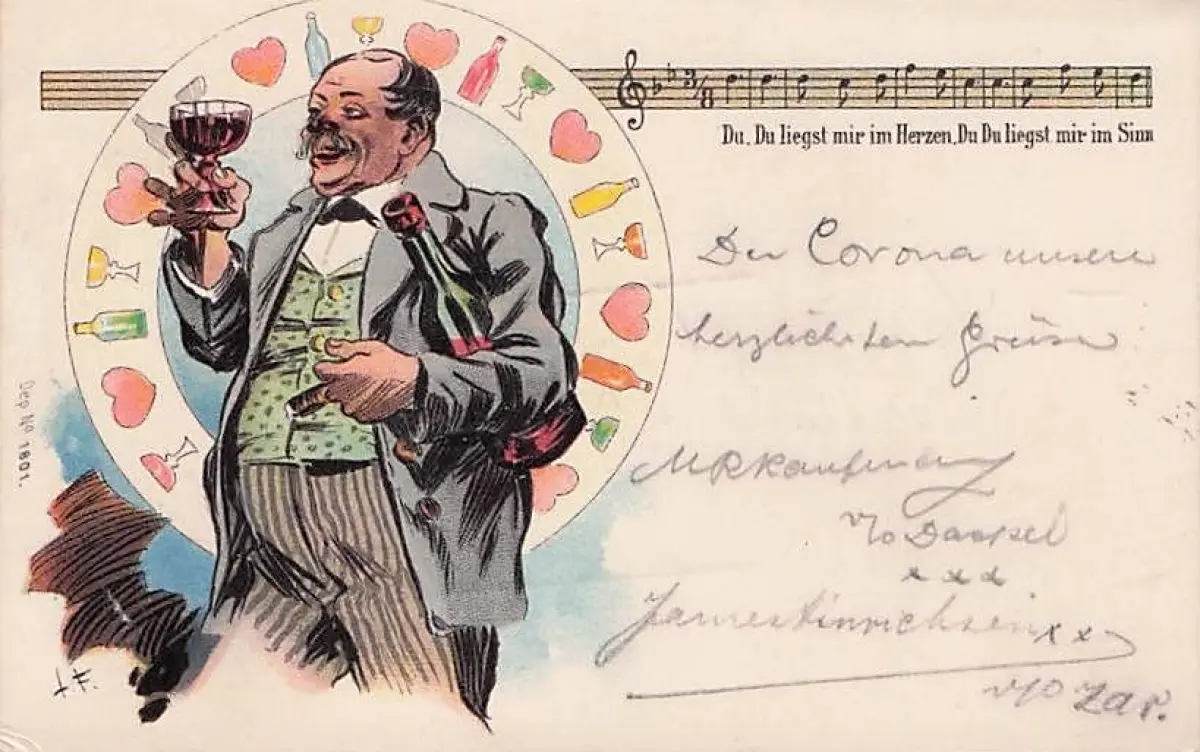 Du, Du liegst mir im Herzen, Du Du liegst mir im Sinn
Der Corona unsere
herzlichsten Grüsse
MRKaufmann
v/o
x x x
James Hinrichsen x x
v/o Zar.
Dep No 1801.
J.F.